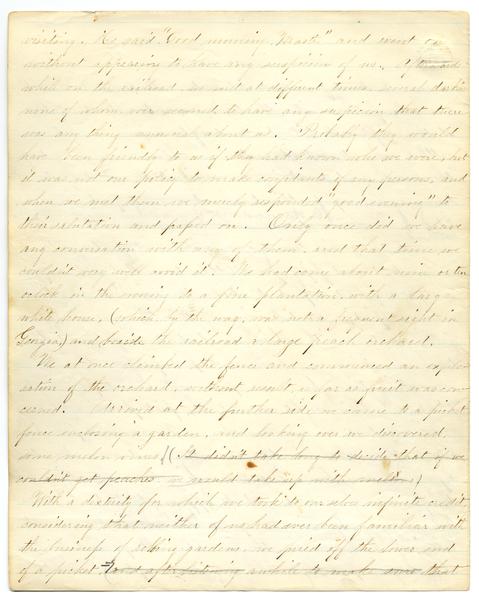 visiting. He said "Good morning, Massa" and went on
without appearing to have any suspicion of us. Afterwards
while on the railroad we met at different times several darkies
none of whom ever seemed to have any suspicion that there
was any thing unusual about us. Probably they would
have been friendly to us if they had known who we were, but
it was not our policy to make confidants of any persons, and
when we met them we merely responded "good evening" to
their salutation and passed on. Only once did we have
any conversation with any of them, and that time we
couldn't very well avoid it. We had come about nine or ten
oclock in the evening to a fine plantation, with a large
white house, (which by the way, was not a frequent sight in
Georgia) and beside the railroad a large peach orchard.
We at once climbed the fence and commenced an explo-
ration of the orchard, without result so far as fruit was con-
cerned. Arrived at the further side we came to a picket
fence enclosing a garden, and looking over we discovered
some melon vines! (It didn't take long to decide that if we
couldn't get peaches we would take up with melons)
With a dexterity for which we took to ourselves infinite credit,
considering that neither of us had ever been familiar with
the business of robbing gardens, we pried off the lower end
of a picket and after listening awhile to make sure that